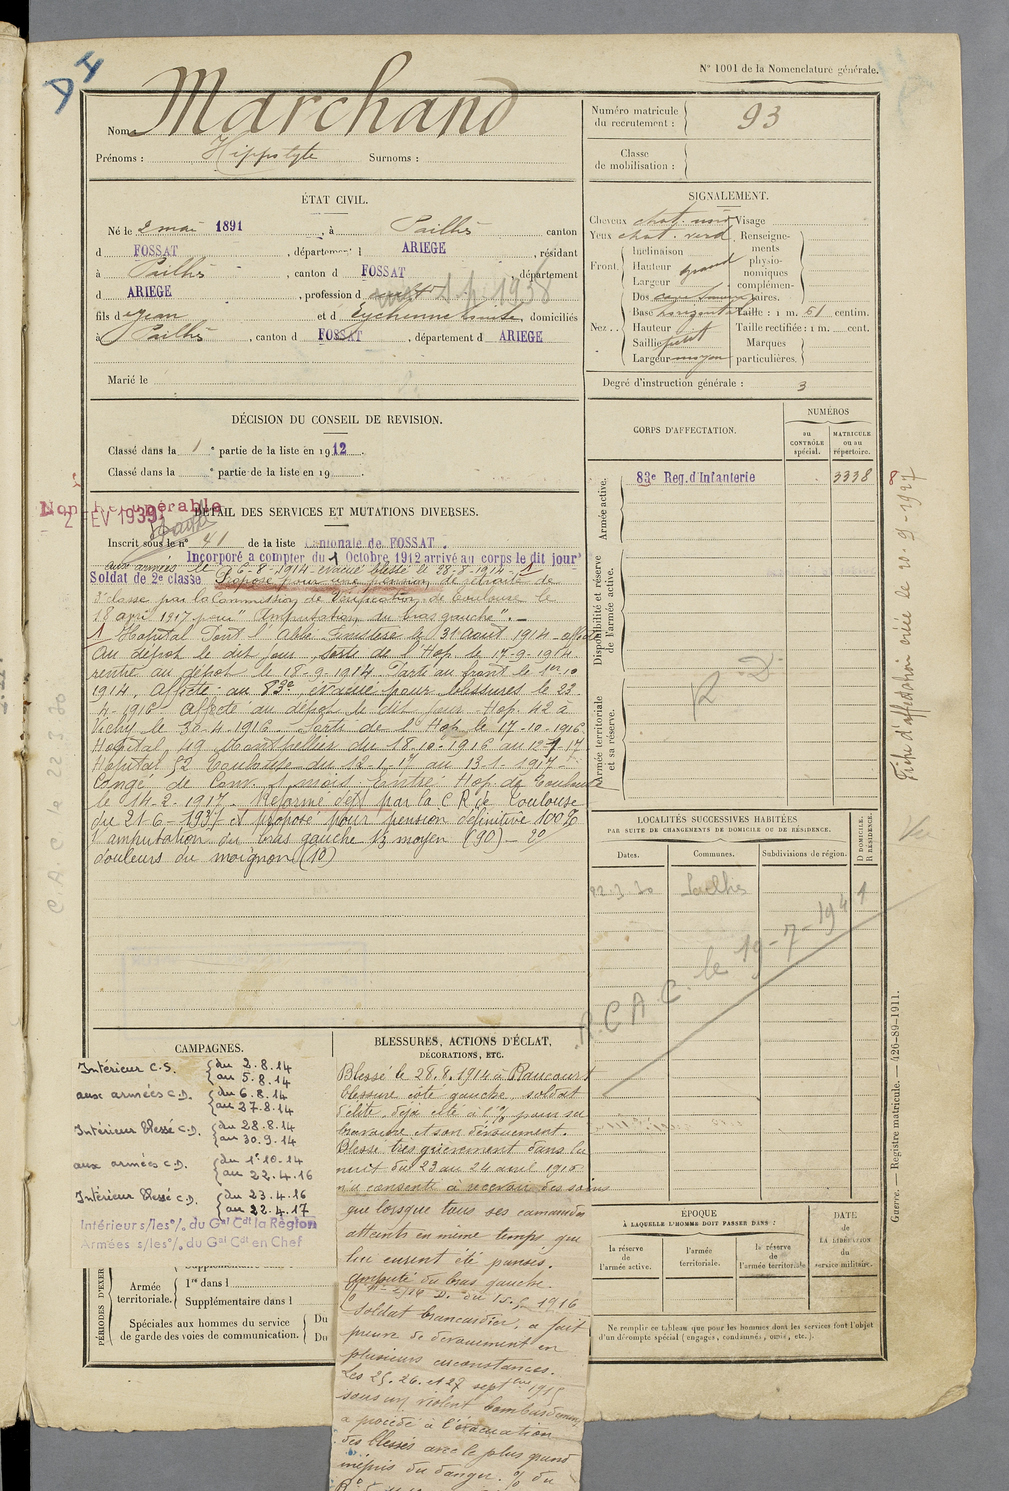 N° 1001 de la Nomenclature générale.
Nom Marchand
Prénoms : Hippolyte Surnoms :
Numéro matricule du recrutement : 93
Classe de mobilisation :
ÉTAT CIVIL.
Né le 2 mai 1891, à Pailhès canton
d FOSSAT, département d ARIEGE, résidant
à Pailhès, canton d FOSSAT, département
d ARIEGE, profession d
fils de Jean et d Eychenne Louise, domiciliés
à Pailhès, canton d FOSSAT, département d ARIEGE
Marié le
SIGNALEMENT.
Cheveux chat. noir Visage
Yeux chat. verd Renseignements physionomiques complémentaires.
Front. Inclinaison
Hauteur grand
Largeur
Nez Dos
Base horizontal
Hauteur
Saillie petit
Largeur moyen
Taille : 1 m. 61 centim.
Taille rectifiée : 1 m. cent.
Marques particulières.
Degré d'instruction générale : 3
DÉCISION DU CONSEIL DE REVISION.
Classé dans la 1e partie de la liste en 1912.
Classé dans la e partie de la liste en 19 .
CORPS D'AFFECTATION.
NUMÉROS
au CONTRÔLE spécial.
MATRICULE ou au répertoire.
Armée active.
83e Reg. d'Infanterie 3338
Disponibilité et réserve de l'armée active.
Armée territoriale et sa réserve.
R. D.
Non Récupérable
2 FEV 1939
DÉTAIL DES SERVICES ET MUTATIONS DIVERSES.
Inscrit sous le n° 41 de la liste cantonale de FOSSAT.
Incorporé a compter du 1 Octobre 1912 arrivé au corps le dit jour
aux armées le 6-8-1914 évacué blessé le 28-8-1914 - 1
Soldat de 2e classe Proposé pour une pension de retraite de
3e classe par la Commission de Vérification de Toulouse le
18 avril 1917 pour "Amputation du bras gauche". -
1 Hopital Pont l'Abbé Finistère le 31 Août 1914 - affecté
au dépôt le dit jour, sorti de l'Hop. le 17-9-1914
rentré au dépôt le 18-9-1914. Parti au front le 1er 10
1914. Affecté au 83e, évacué pour blessures le 23
-4-1916. Affecté au dépôt le dit jour. Hop. 42 à
Vichy le 30-4-1916. Sorti de l'Hop. le 17-10-1916.
Hopital 49 Montpellier du 18-10-1916 au 12-1-17
Hopital 52 Toulouse du 12-1-17 au 13-1-1917 -
Congé de Conv. 1 mois. Entré Hop. de Toulouse
le 14-2-1917. Réformé par la C R de Toulouse
du 21-6-1937 et proposé pour pension définitive 100%
1° amputation du bras gauche 1/3 moyen (90) - 2°/
douleurs du moignon (10)
Fiche d'affectation créée le 20-9-1927
C.A.C le 22 3 30
LOCALITÉS SUCCESSIVES HABITÉES
PAR SUITE DE CHANGEMENTS DE DOMICILE OU DE RÉSIDENCE.
Dates. Communes. Subdivisions de région. D DOMICILE. R RÉSIDENCE.
22-3-30 Pailhès
R.C.A.C. le 19-7-1941
CAMPAGNES.
Intérieur C.S. du 2.8.14
au 5.8.14
aux armées C.D. du 6.8.14
au 27.8.14
Intérieur blessé C.D. du 28.8.14
au 30.9.14
aux armées C.D. du 1er 10.14
au 22.4.16
Intérieur blessé C.D. du 23.4.16
au 22.4.17
Intérieur s/les o/. du Gal Cdt la Région
Armées s/les o/. du Gal Cdt en Chef
PÉRIODES D'EXER
Supplémentaire dans l
Armée territoriale. 1re dans l
Supplémentaire dans l
Spéciales aux hommes du service de garde des voies de communication. Du
Du
BLESSURES, ACTIONS D'ÉCLAT,
DÉCORATIONS, ETC.
Blessé le 28.8.1914 à Raucourt
blessure côté gauche, soldat
d'élite déjà cité à l'% pour sa
bravoure et son dévouement.
Blessé très grièvement dans la
nuit du 23 au 24 avril 1916
n'a consenti à recevoir des soins
que lorsque tous ses camarades
atteints en même temps que
lui eurent été pansés.
Amputé du bras gauche.
du 15 Juin 1916
Soldat brancardier, a fait
preuve de dévouement en
plusieurs circonstances.
Les 25. 26. et 27 septbre 1915
sous un violent bombardement
a procédé à l'évacuation
des blessés avec le plus grand
mépris du danger. % du
ÉPOQUE
À LAQUELLE L'HOMME DOIT PASSER DANS :
la réserve de l'armée active.
l'armée territoriale.
la réserve de l'armée territoriale
DATE de LA LIBÉRATION du service militaire.
Ne remplir ce tableau que pour les hommes dont les services font l'objet
d'un décompte spécial (engagés, condamnés, omis, etc.).
Guerre. — Registre matricule. — 426-89-1911.